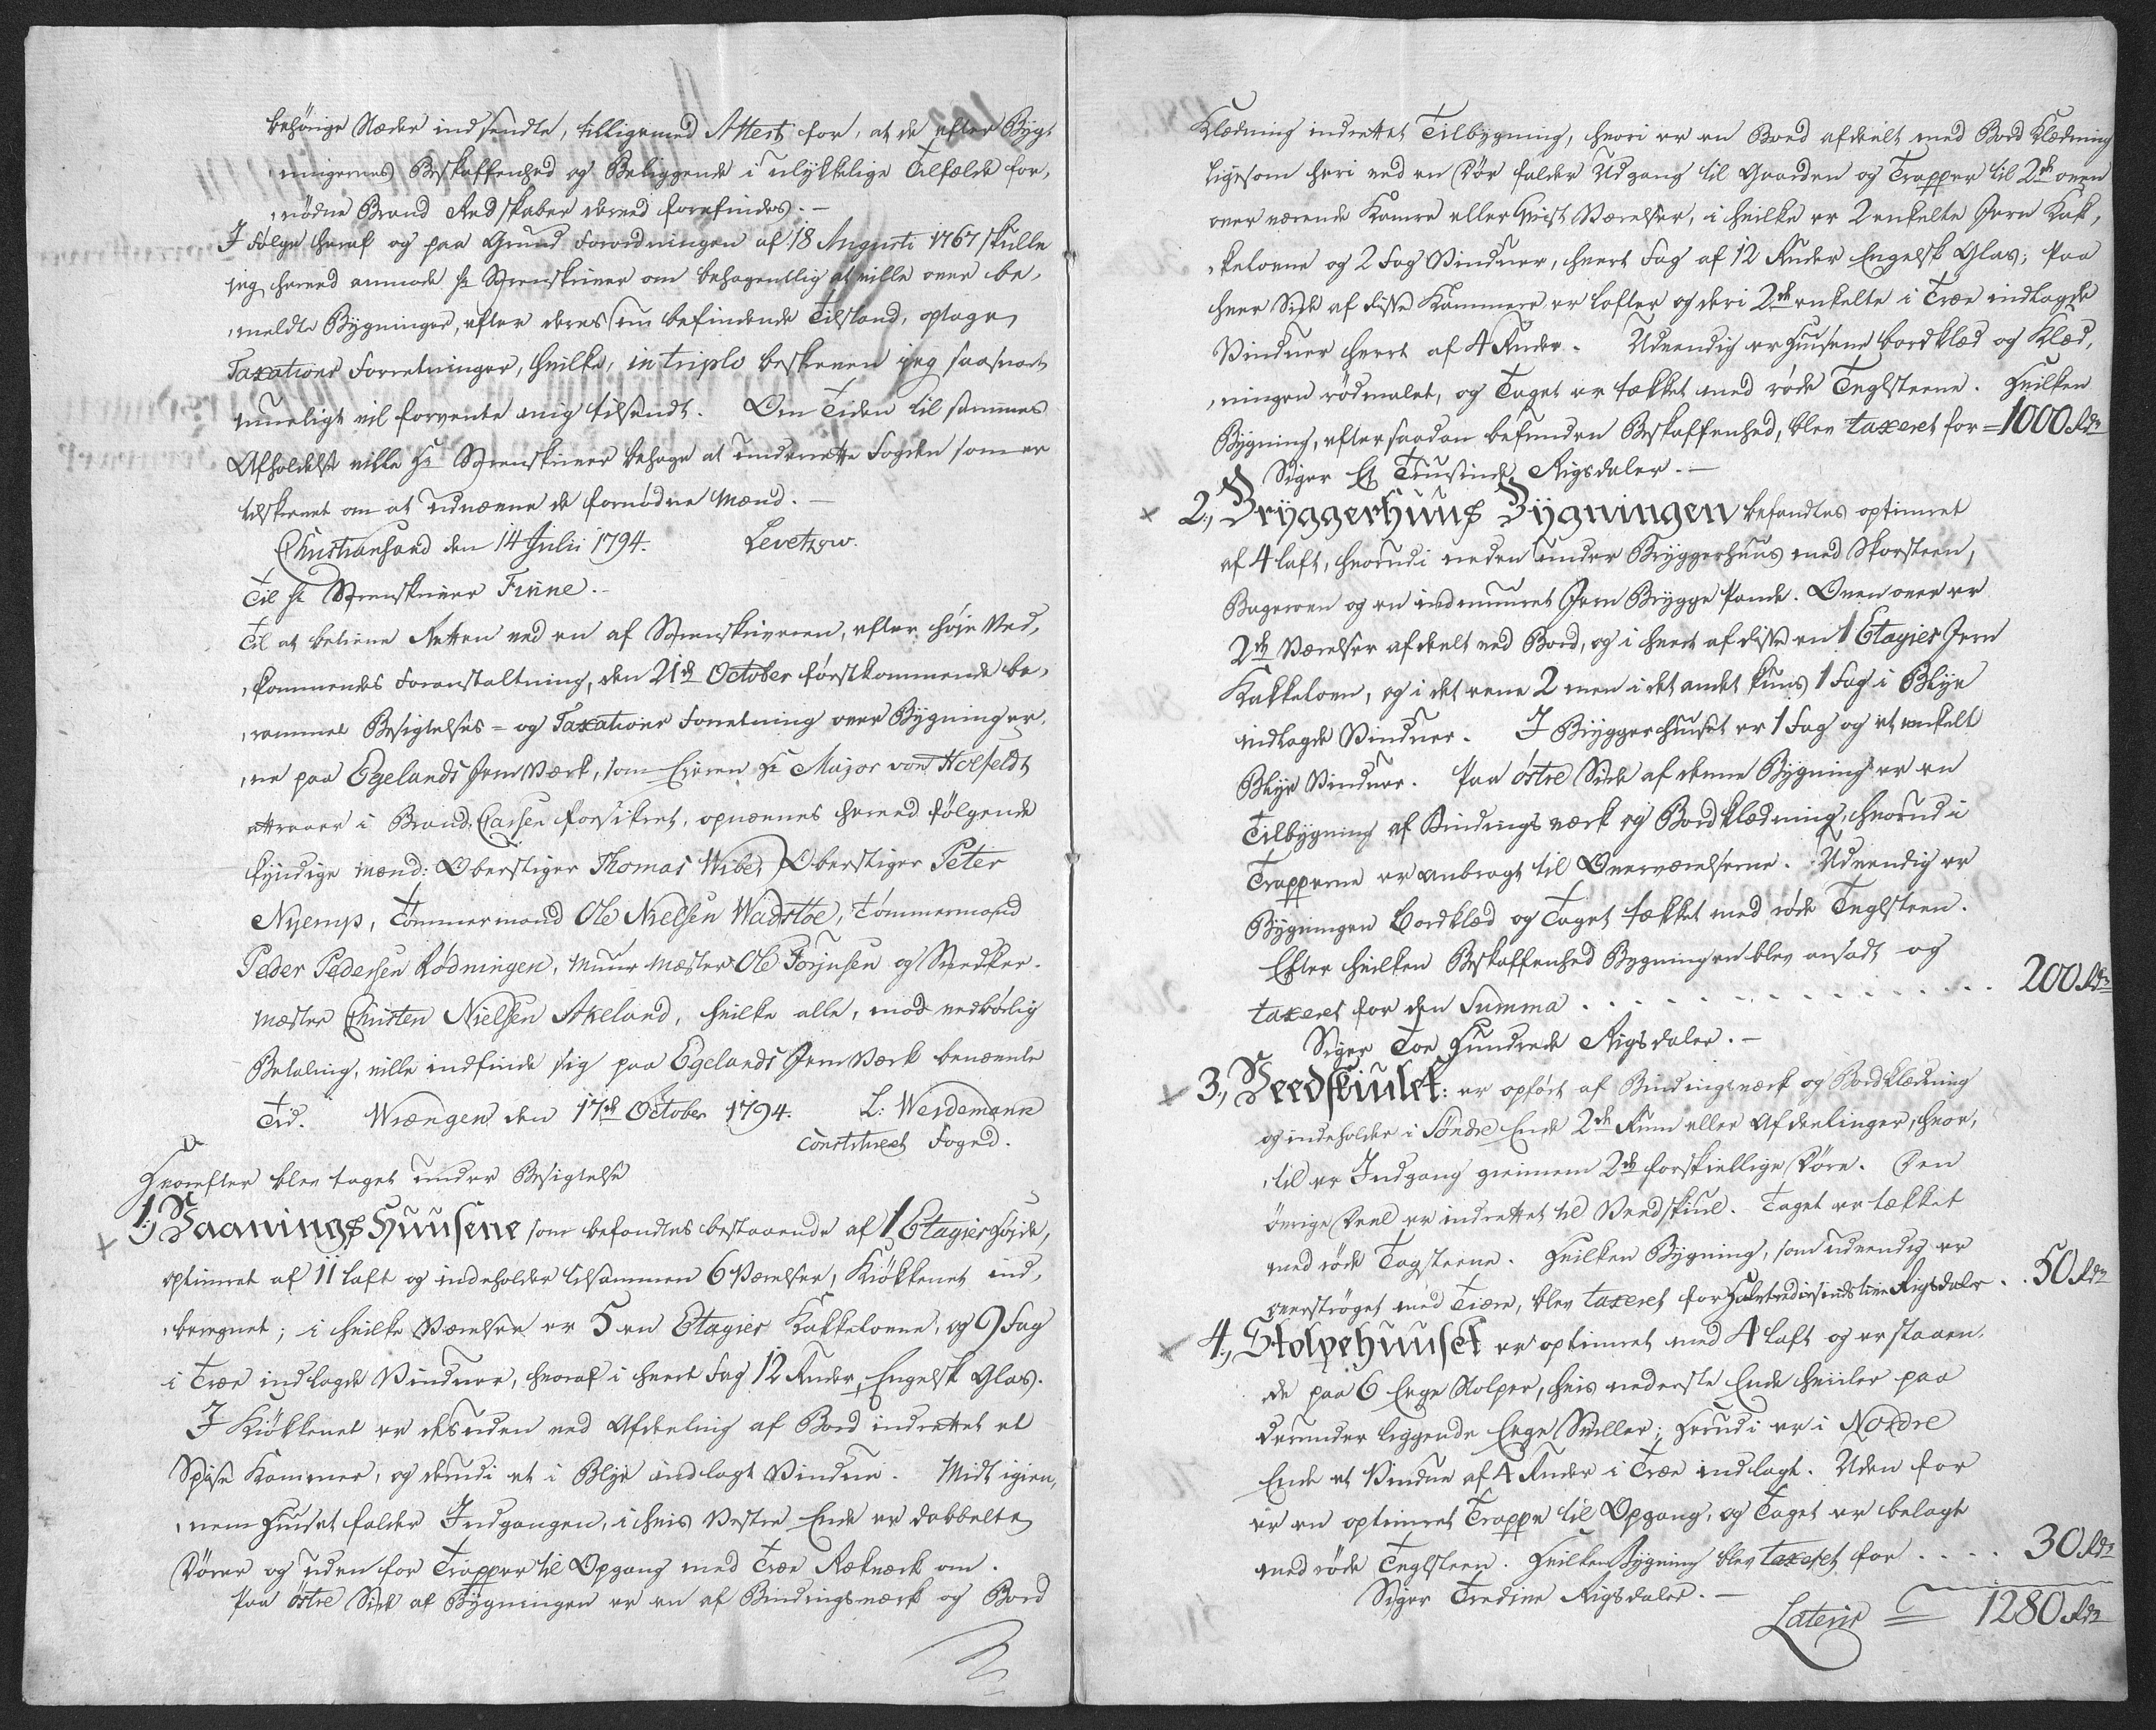 behörige Stæder indsendte, tilligemed Attest for, at de efter Byg-
ningernes Beskaffenhed og Beliggende i ulykkelige Tilfælde for-
nödne Brand Redskaber derved forefindes.—
I Fölge heraf og paa Grund Forordningen af 18 Augusti 1767 skulle
jeg herved anmode Hr Sorenskriver om behagentlig at ville over be-
meldte Bygninger, efter deres nu befindende Tilstand, optage
Taxations Forretninger, hvilke, in triplo beskreven jeg saasnart
mueligt vil forvente mig tilsendt. Om Tiden til sammes
Afholdelse ville Hr Sorenskriver behage at underrette Fogden som er
tilskrevet om at udnævne de fornödne Mænd.—
Christiansand den 14 Julii 1794. Levetzow.
Til Hr Sorenskriver Finne.—
Til at betiene Retten ved en af Sorenskriveren, efter höie Ved-
kommendes Foranstaltning, den 21de October förstkommende be-
rammet Besigtelses- og Taxations Forretning over Bygninger-
ne paa Egelands Jern Værk, som Eieren Hr Major von Holfeldt
attraaer i Brand-Cassen forsikret, opnævnes herved fölgende
kyndige Mænd: Oberstiger Thomas Wibe, Oberstiger Peter
Nyemp, Tömmermand Ole Nielsen Wadstöe, Tömmermand
Peder Pedersen Rödningen, Muur Mæster Ole Torjusen og Snedker-
mæster Christen Nielsen Akeland, hvilke alle, mod vedbörlig
Betaling, ville indfinde sig paa Egelands Jern Værk benævnte
Tid. Wrængen den 17de October 1794. L: Weidemann
constitueret Foged.
Hvorefter blev taget under Besigtelse
1, Vaanings Huusene som befandtes bestaaende af 1 Etagies Höide,
optimret af 11 laft og indeholder tilsammen 6 Værelser, Kiökkenet ind-
beregnet; i hvilke Værelser er 5 en Etagies Kakkelovne, og 9 Fag
i Træe indlagde Vinduer, hvoraf i hvert Fag 12 Ruder Engelsk Glas.
I Kiökkenet er desuden ved Afdeeling af Bord indrettet et
Spise Kammer, og derudi et i Blye indlagt Vindue. Midt igien-
nem Huuset falder Indgangen, i hvis Vestre Ende er dobbelte
Dörer og uden for Trapper til Opgang med Træe Rækværk om.
Paa östre Side af Bygningen er en af Bindingsværk og Bord
Klædning indrettet Tilbygning, hvori er en Boed afdeelt med Bord Klædning
ligesom heri ved en Dör falder Udgang til Gaarden og Trapper til 2de oven
over værende Kamre eller Qvist Værelser, i hvilke er 2 enkelte Jern Kak-
kelovne og 2 Fag Vinduer, hvert Fag af 12 Ruder Engelsk Glas; Paa
hver Side af disse Kammere er Lofter og deri 2de enkelte i Træe indlagde
Vinduer hvert af 4 Ruder. Udvendig er Huusene bordklæd og Klæd-
ningen rödmalet, og Taget er tækket med röde Teglsteene. Hvilken
Bygning, efter saadan befunden Beskaffenhed, blev taxeret for = 1000 Rdr
Siger Et Tusinde Rigsdaler.—
2, Bryggerhuus Bygningen befandtes optimret
af 4 laft, hvorudi neden under Bryggerhuus med Skorsteen,
Bagerovn og en indmuuret Jern Brygge Pande. Oven over er
2de Værelser afdeelt ved Bord, og i hvert af disse en 1 Etagies Jern
Kakkelovn, og i det eene 2 men i det andet kuns 1 Fag i Blye
indlagde Vinduer. I Bryggerhuuset er 1 Fag og et enkelt
Blye Vinduer. Paa östre Side af denne Bygning er en
Tilbygning af Bindingsværk og Bordklædning, hvorudi
Trapperne er anbragt til Overværelserne. Udvendig er
Bygningen Bordklæd og Taget tækket med röde Teglsteen.
Efter hvilken Beskaffenhed Bygningen blev ansadt og
taxeret for den Summa . . . . . . . . . . . . . . 200 Rdr
Siger Toe Hundrede Rigsdaler.—
3, Veedskiulet: er opfört af Bindingsværk og Bordklædning
og indeholder i Söndre Ende 2de Rum eller Afdeelinger, hvor-
til er Indgang gieinnem 2de forskiellige Döre. Den
övrige Deel er indrettet til Veedskiul. Taget er tækket
med röde Tagsteene. Hvilken Bygning, som udvendig er
overströget med Tiære, blev taxeret for Halvtredsindstive Rigsdaler . . 50 Rdr
4, Stolpehuuset er optimret med 4 laft og er staaen-
de paa 6 Eege Stolper, hvis nederste Ende hviiler paa
derunder liggende Eege Sviller; Herudi er i Nordre
Ende et Vindue af 4 Ruder i Træe indlagt. Uden for
er en optimret Trappe til Opgang, og Taget er belagt
med röde Teglsteen. Hvilken Bygning blev taxeret for . . . . 30 Rdr
Siger Tredive Rigsdaler.—
Lateris = 1280 Rdr